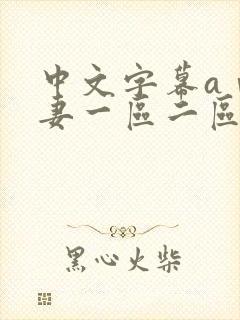 中文字幕a
妻一區二區
黑心火柴